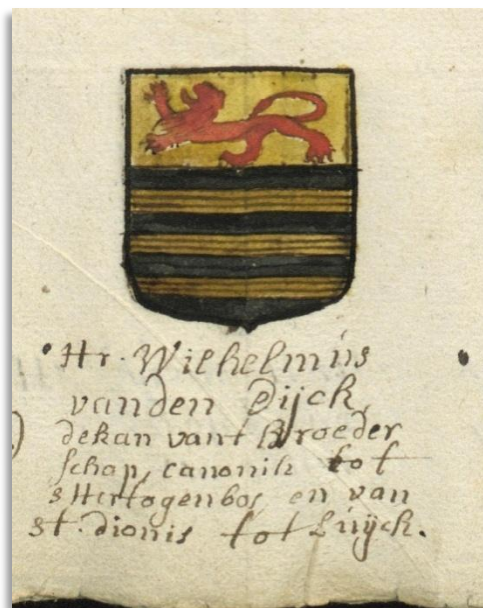 Hr. Wilhelmus
vanden Dijck,
dekan vant Broeder
schap, canonik tot
sHertogenbos en van
st. dionis tot Luijck.